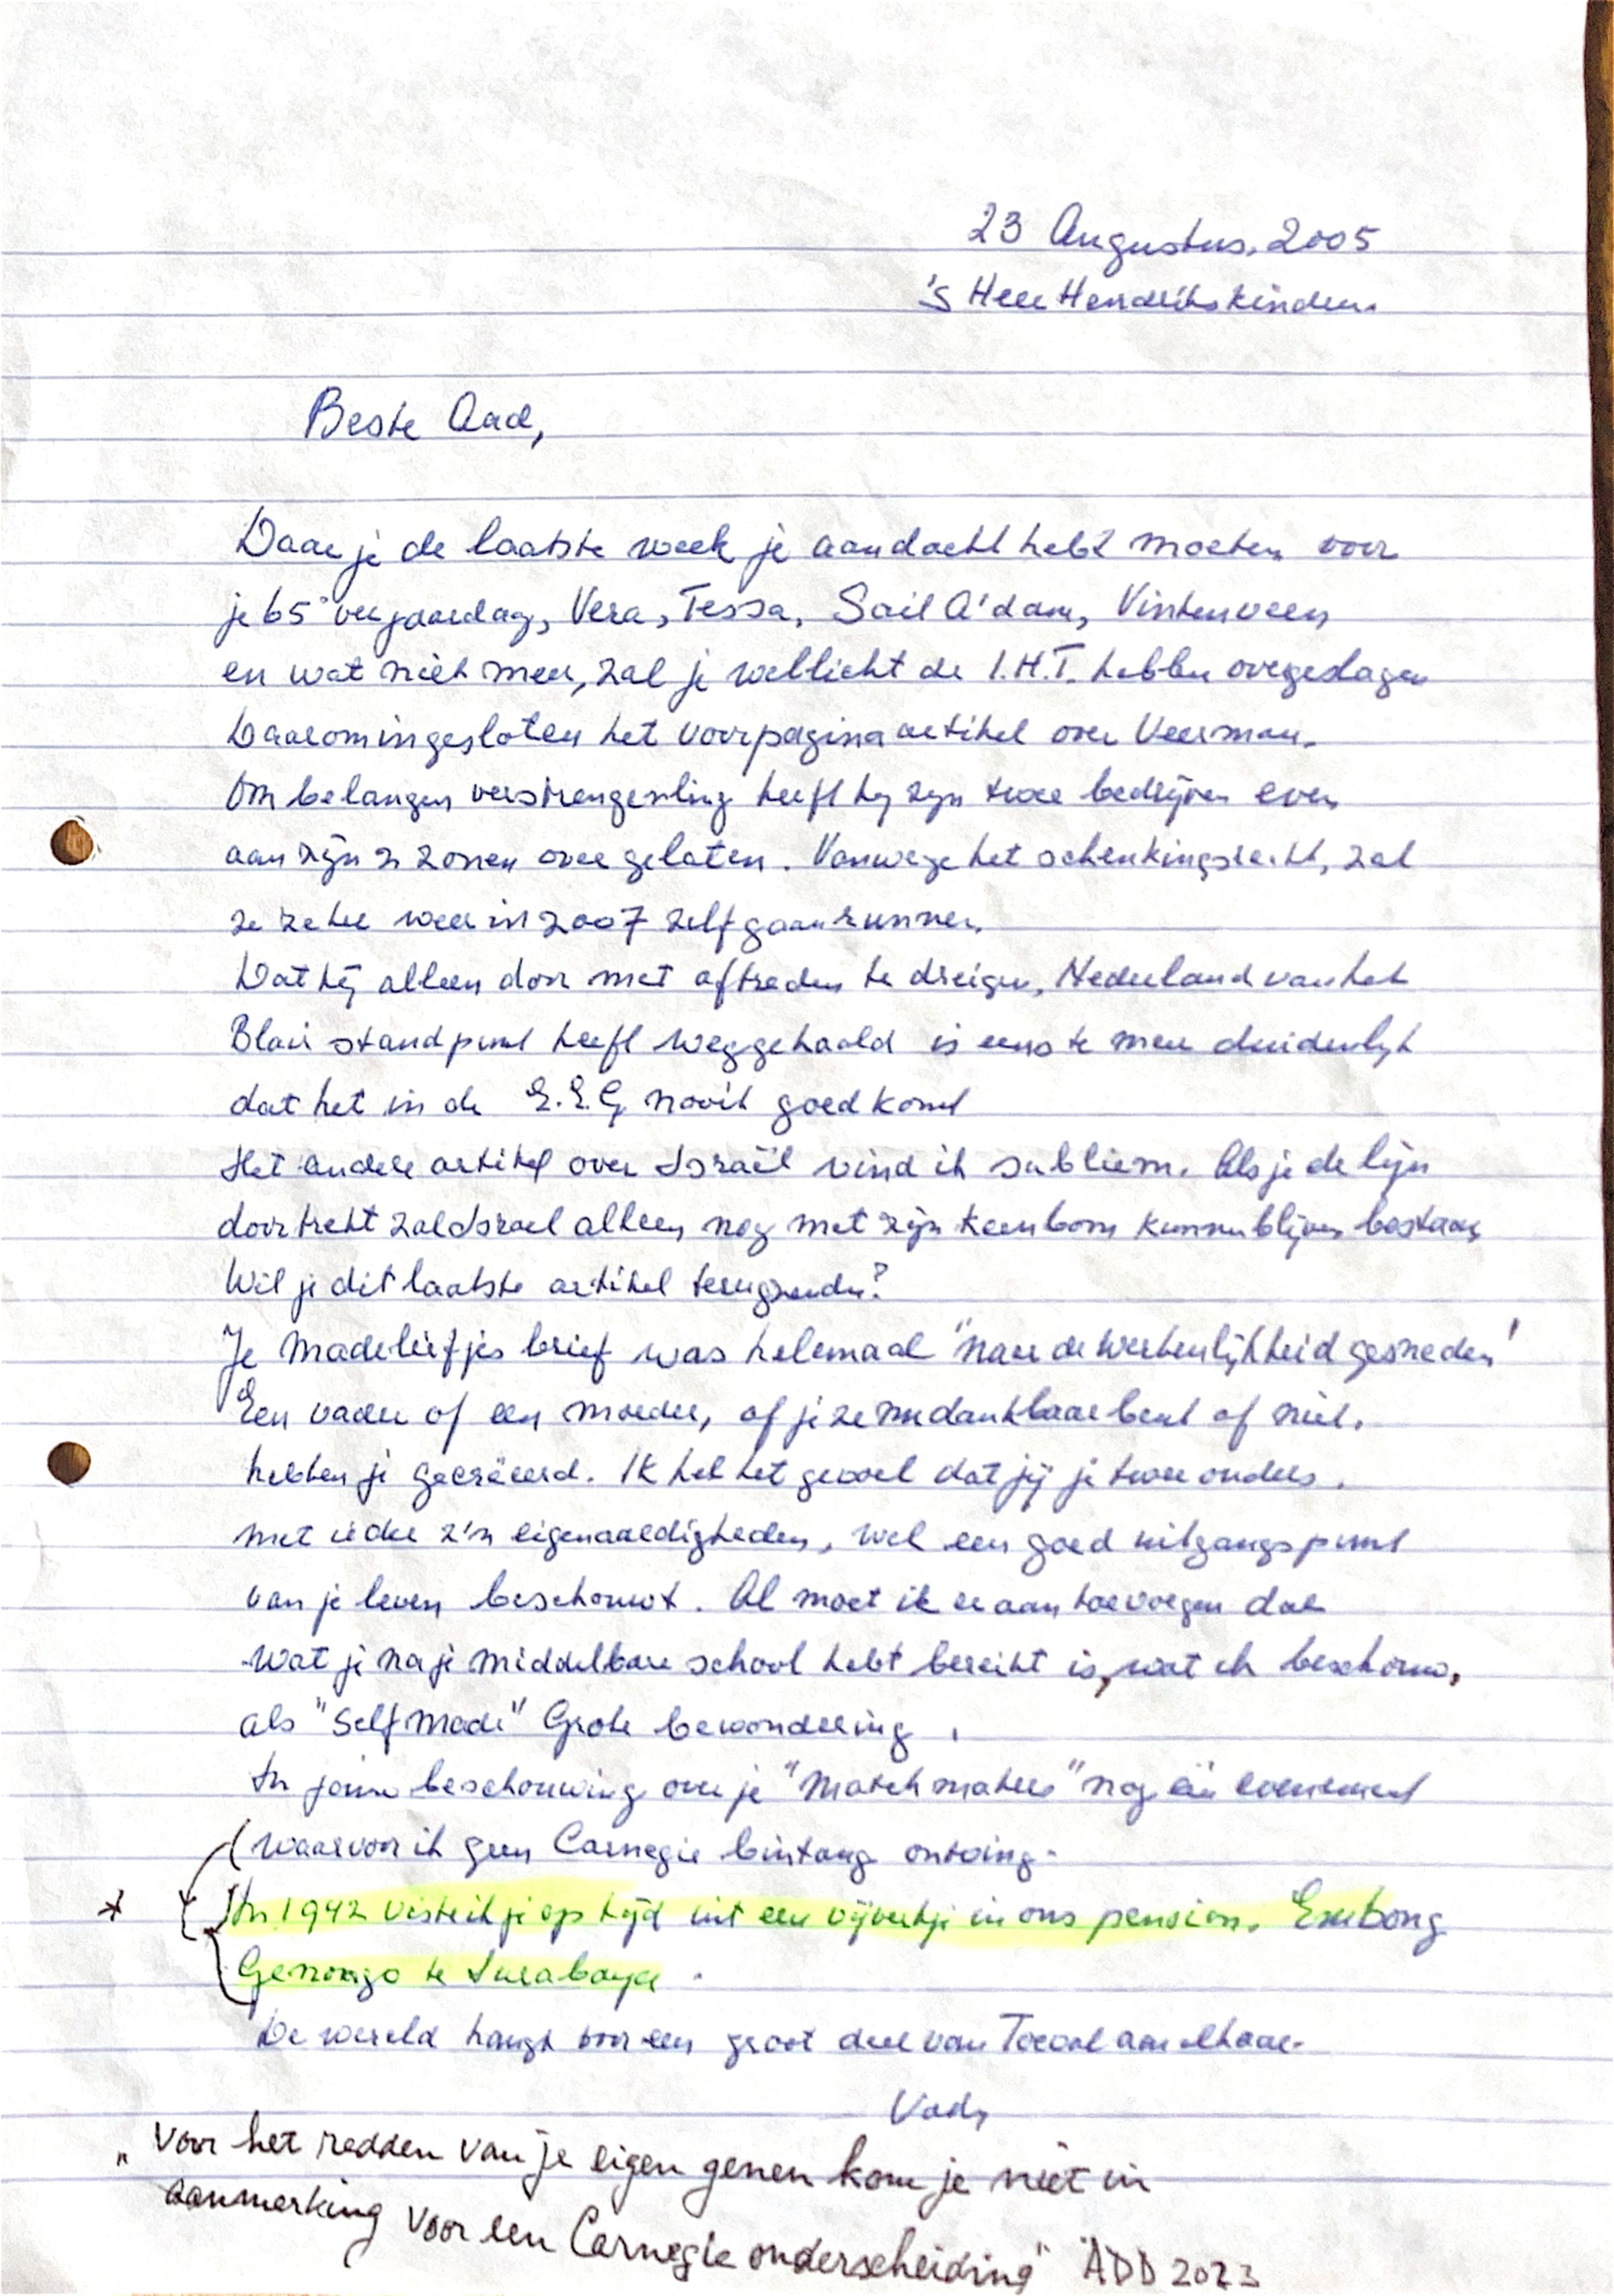 23 Augustus, 2005
's Heer Hendrikskinderen.
Beste Aad,
Daar je de laatste week je aandacht hebt moeten voor
je 65e verjaardag, Vera, Tessa, Sail A'dam, Vinkenveen
en wat niet meer, zal je wellicht de I.H.T. hebben overgeslagen
Daarom ingesloten het voorpagina artikel over Veerman.
Om belangen verstrengenling heeft hij zijn twee bedrijven even
aan zijn 2 zonen over gelaten. Vanwege het schenkingsrecht, zal
ze weer in 2007 zelf gaan runnen.
Dat hij alleen door met aftreden te dreigen, Nederland van het
Blair standpunt heeft weggehaald is eens te meer duidenlijk
dat het in de E.E.G. nooit goed komt
Het andere artikel over Israël vind ik subliem. Als je de lijn
doortrekt zal Israel alleen nog met zijn kernbom kunnen blijven bestaan
Wil je dit laatste artikel terugzenden?
Je Madeliefjes brief was helemaal "naar de werkenlijkheid gesneden"
Een vader of een moeder, of je ze nu dankbaar bent of niet.
hebben je gecreëerd. Ik heb het gevoel dat jij je twee ouders.
met ieder z'n eigenaardigheden, wel een goed uitgangspunt
van je leven beschouwt. Al moet ik er aan toevoegen dat
wat je na je middelbare school hebt bereikt is, wat ik beschouw,
als "Self made" Grote bewondering.
In jouw beschouwing over je "Match maters" nog één evenement
(waarvoor ik geen Carnegie bintang ontving.
* In 1942 viste ik je op tijd uit een vijvertje in ons pension. Embong
Genongo te Surabaya.
De wereld hangt voor een groot deel van Toeval aan elkaar.
Vady
"Voor het redden van je eigen genen kom je niet in
aanmerking voor een Carnegie onderscheiding" ADD 2023